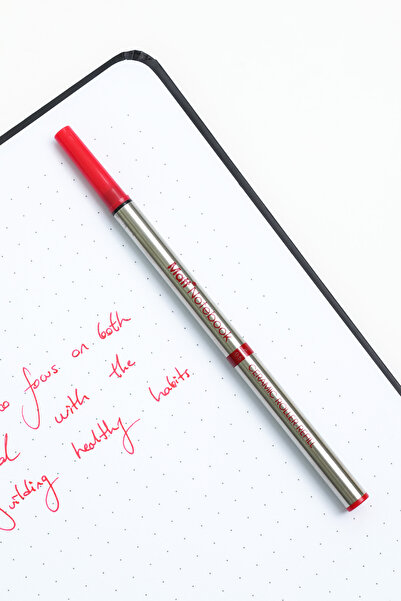 Matt Notebook
CERAMIC ROLLER REFILL
focus on both
with the
healthy habits